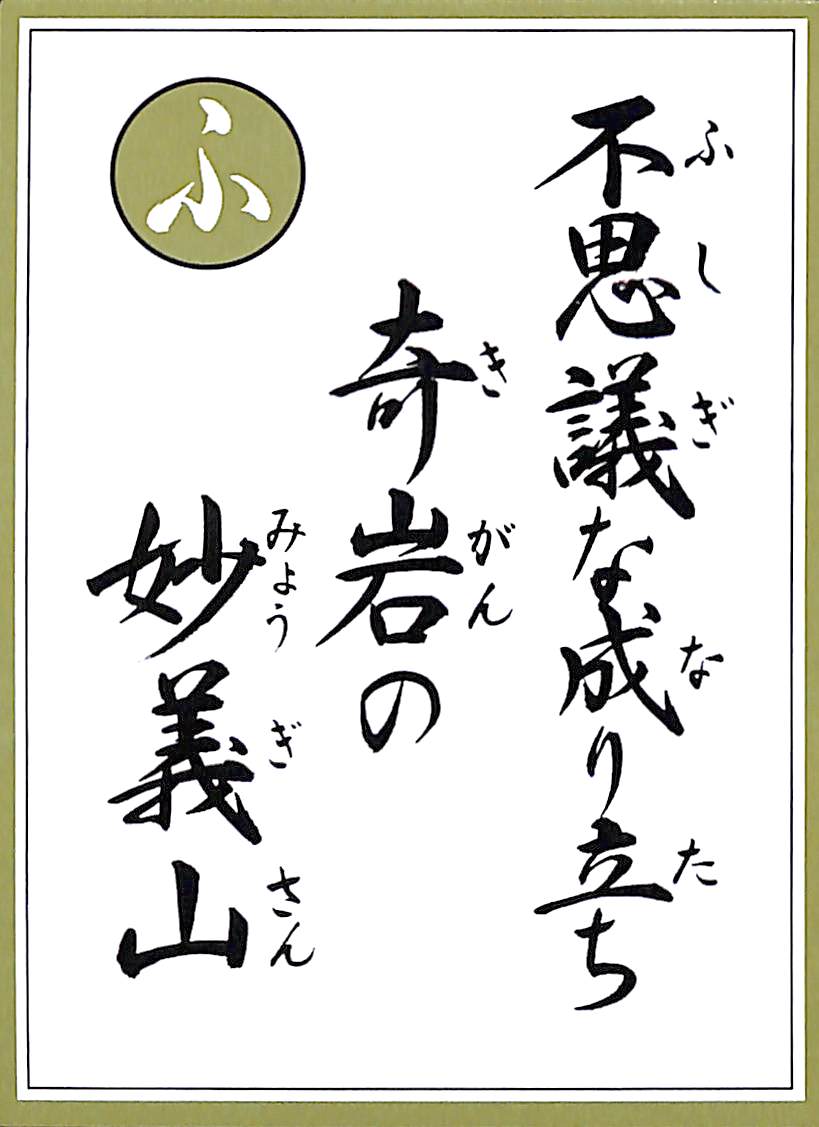 ふ
不思議な成り立ち
ふしぎなた
奇岩の
きがん
妙義山
みょうぎさん